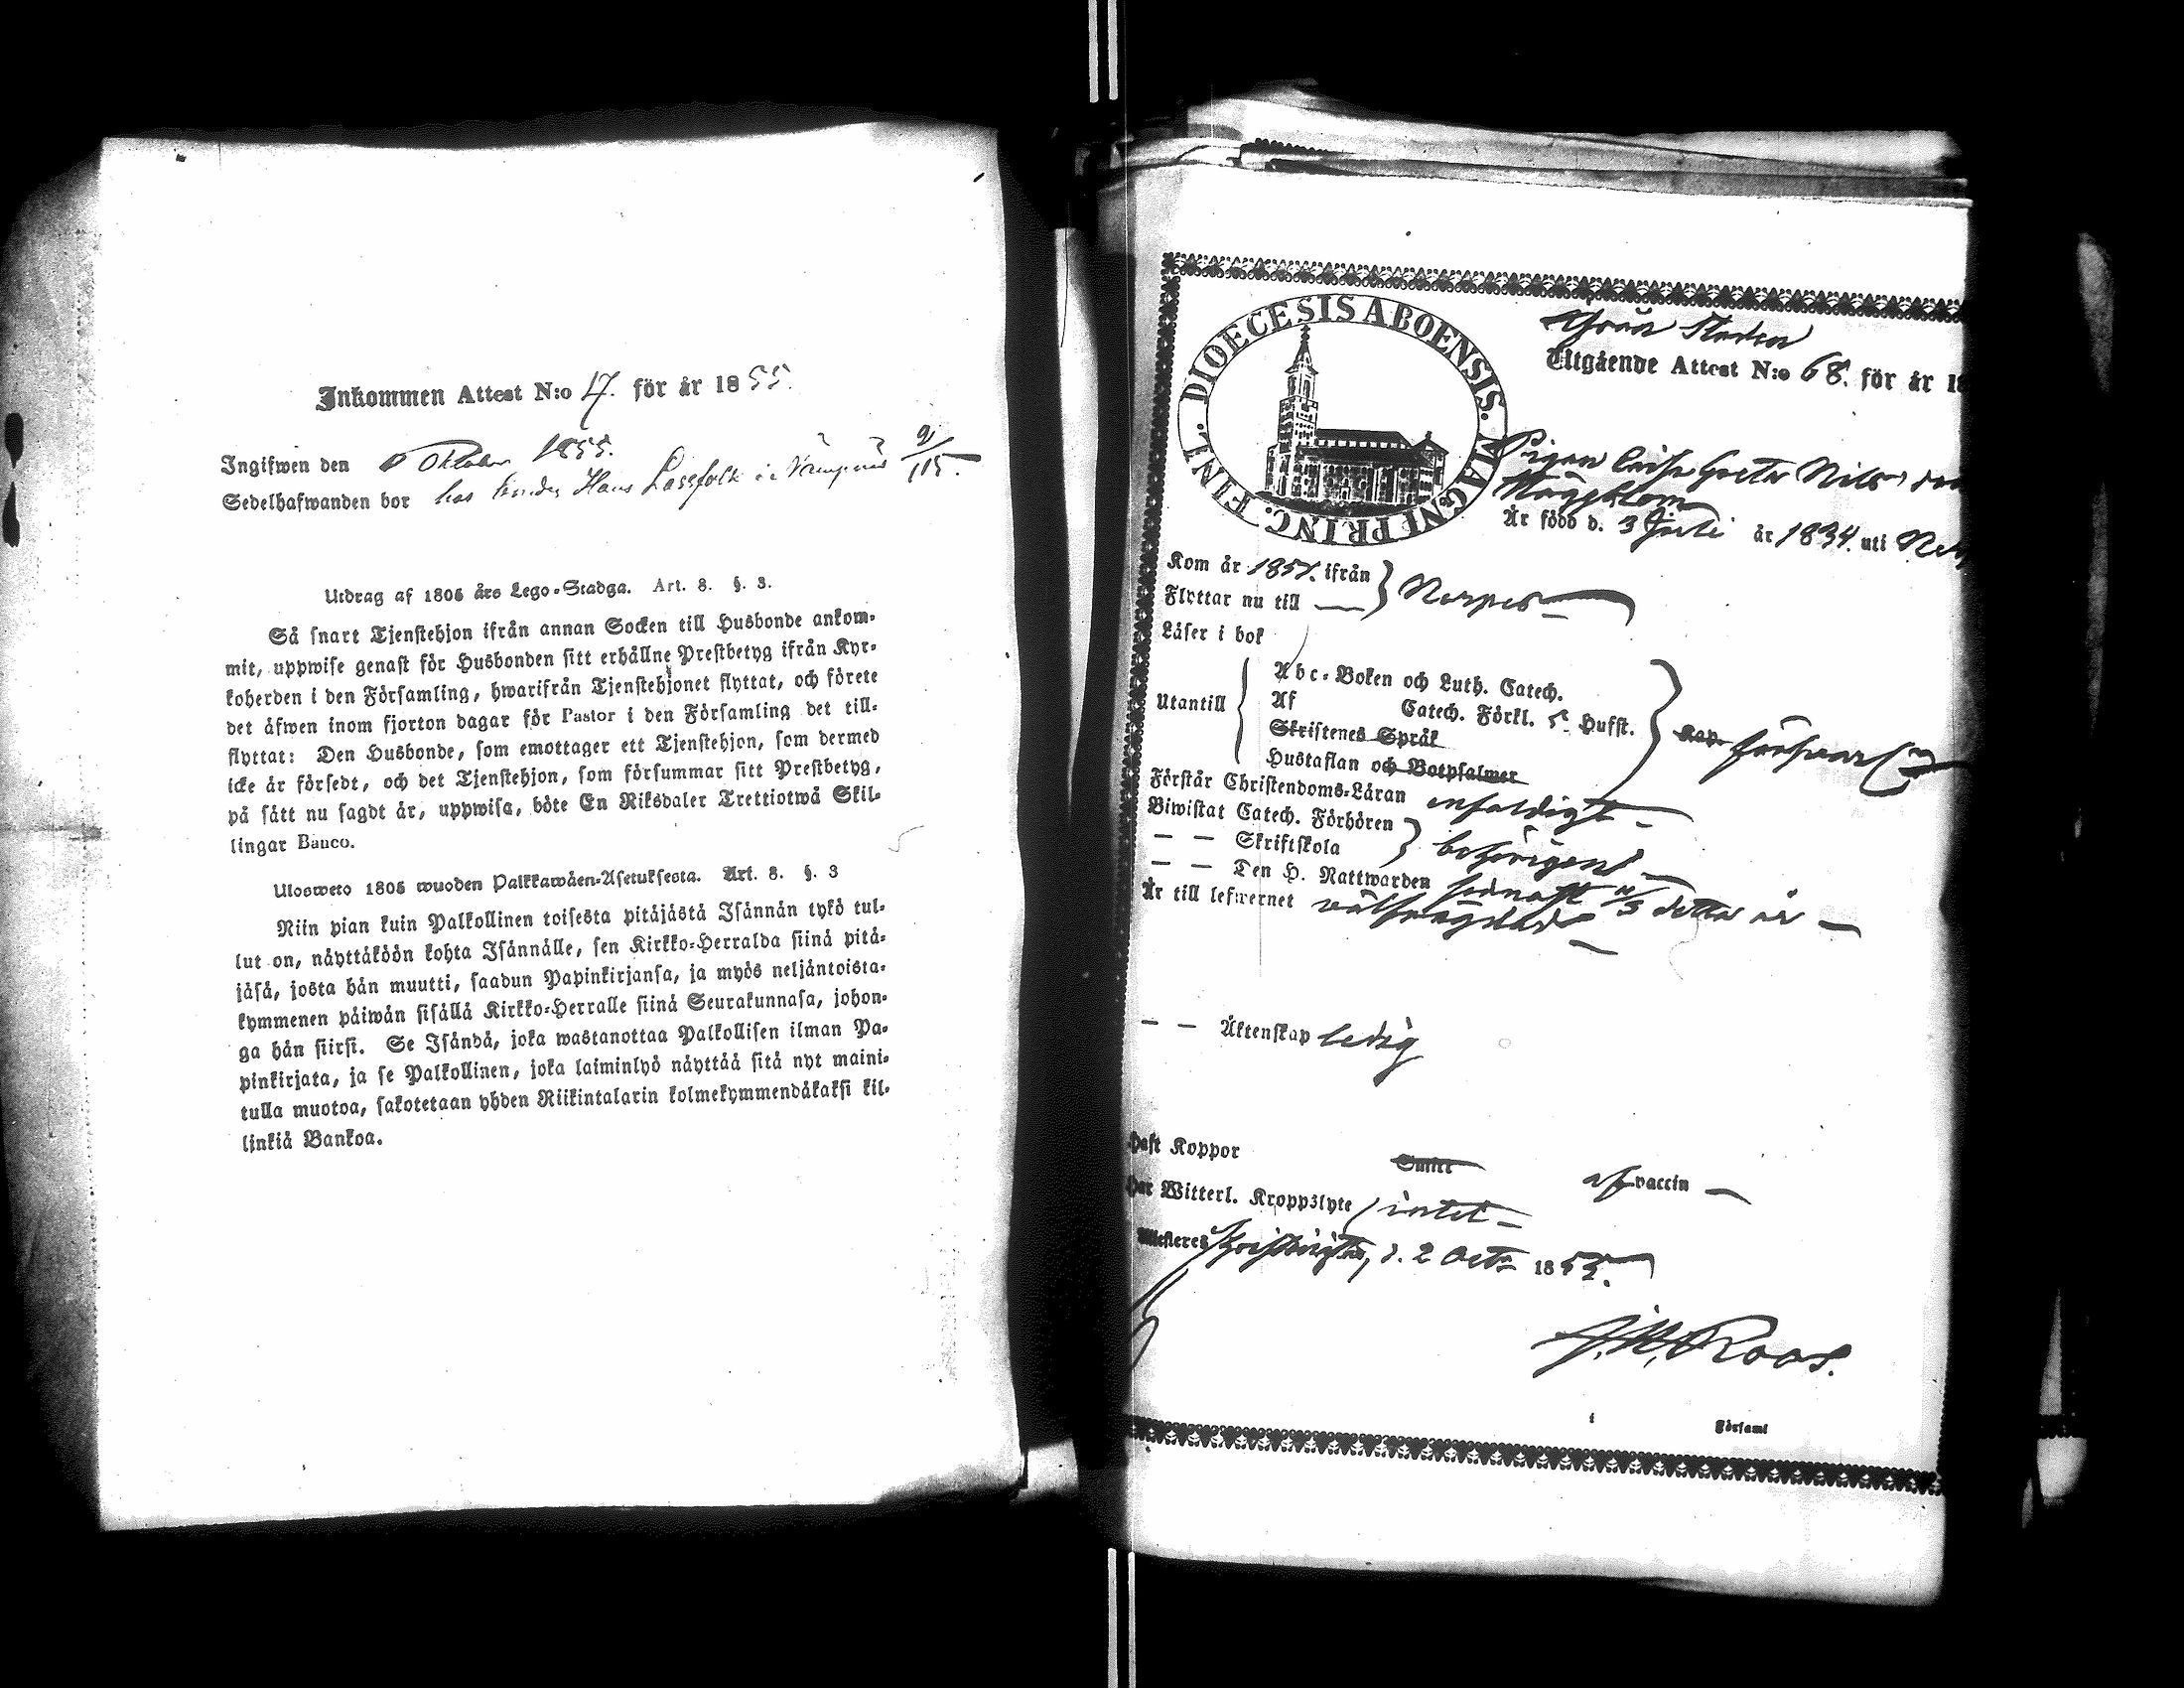 Inkommen Attest N:o 17. för år 1855.
Ingifwen den Oktober 1855.
Sedelhafwanden bor hos bonden Hans Lassfolk i 9/115.
Utdrag af 1805 års Lego-Stadga. Art. 8. §. 3.
Så snart Tjenstehjon ifrån annan Socken till Husbonde ankom-
mit, uppwise genast för Husbonden sitt erhållne Prestbetyg ifrån Kyr-
koherden i den Församling, hwarifrån Tjenstehjonet flyttat, och förete
det äfwen inom fjorton dagar för Pastor i den Församling det till-
flyttat: Den Husbonde, som emottager ett Tjenstehjon, som dermed
icke är försedt, och det Tjenstehjon, som försummar sitt Prestbetyg,
på sätt nu sagdt är, uppwisa, böte En Riksdaler Trettiotwå Skil-
lingar Banco.
Ulosweto 1805 wuoden Palkkawäen-Asetuksesta. Art. 8. §. 3
Niin pian kuin Palkollinen toisesta pitäjästä Isännän tykö tul-
lut on, näyttäköön kohta Isännälle, sen Kirkko-Herralda siinä pitä-
jäsä, josta hän muutti, saadun Papinkirjansa, ja myös neljäntoista-
kymmenen päiwän sisällä Kirkko-Herralle siinä Seurakunnasa, johon-
ga hän siirsi. Se Isändä, joka wastanottaa Palkollisen ilman Pa-
pinkirjata, ja se Palkollinen, joka laiminlyö näyttää sitä nyt maini-
tulla muotoa, sakotetaan yhden Riikintalarin kolmekymmendäkaksi kil-
linkiä Bankoa.
DIOECESIS ABOENSIS. MAGNI PRINC. FINL.
från Staden
Utgående Attest N:o 68. för år 1
Pigan Caisa Greta Nils
Häggblom
Är född d. 3 Juli år 1834. uti
Kom år 1851. ifrån
Flyttar nu till Nerpes
Läser i bok
Utantill
Abc-Boken och Luth. Catech.
Af Catech. Förkl. 5 Hufst.
Skriftenes Språk
Hustaflan och Botpsalmer
Kap. försvarl
Förstår Christendoms-Läran enfaldigt
Biwistat Catech. Förhören
— — Skriftskola behörigen
— — Den H. Nattwarden sednast 11/3 detta år
Är till lefwernet välfrägdad
— — Äktenskap ledig
Haft Koppor Smitt af vaccin
Har Witterl. Kroppslyte intet
Attesteres Christinestad, d. 2 Oct. 1855.
J. M. Roos.
i Församl